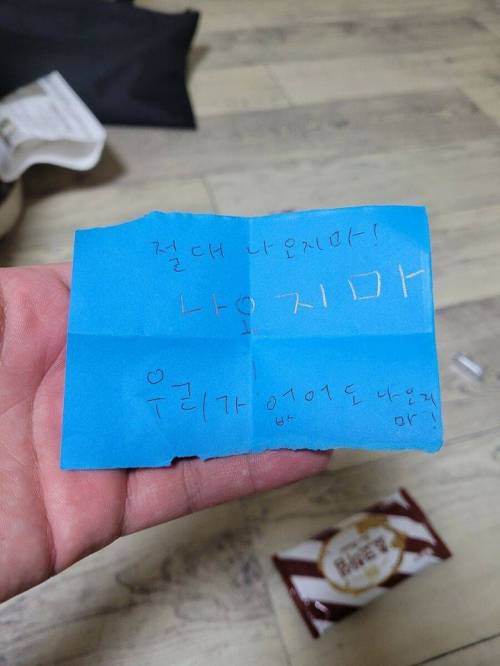 절대 나오지마!
나오지마
우리가 없어도 나오지
마!